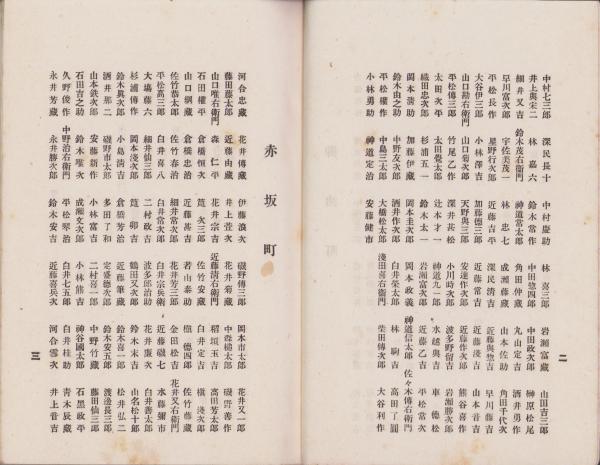 二
中村七三郎 深民長十 中村慶助 林喜三郎 岩瀬富蔵 山田吉三郎
井上與宋二 林嘉六 鈴木常作 中田惣四郎 中田政次郎 榊原松尾
細井又吉 鈴木茂右衛門 神道常太郎 角田仲蔵 丸山定吉 酒井勇作
早川富次郎 宇佐美茂一 林忠七 成瀬藤蔵 山本佐助 角田千代次
平松長作 星野行次郎 近藤吉平 深民清吉 近藤與惣吉 早川藤吉
大谷伊三郎 小林澤吉 加藤德三郎 近藤常吉 近藤淺吉 山本音吉
山口勘右衛門 山口菊次郎 天野與三郎 安達作次郎 近藤作次郎 熊谷喜作
平松傳三郎 竹尾乙作 深井甚松 小川時次郎 波多野留吉 岩瀬勝次郎
太田次平 太田覺太郎 辻本才一 神道九一郎 水越與吉 車德松
織田忠次郎 杉浦五一 鈴木太一 岩瀬富次郎 近藤乙吉 平松常次
岡本清助 加藤伊蔵 岡本圭次郎 岡本政義 神道信太郎 佐々木傳右衛門
鈴木由之助 中野友次郎 酒井作次郎 白井榮太郎 林駒吉 高田了圓
平松權松 中島三太郎 大橋松太郎 淺田喜右衛門 柴田傳次郎 大谷利作
小林勇助 神道定治 安藤健市
赤坂町
河合忠蔵 花井傳蔵 伊藤浪次 磯野傳三郎 岡本市太郎 花井又一郎
藤田藤太郎 近藤由蔵 井上萱次 花井菊蔵 中森樋太郎 磯野善作
山口唯右衛門 森仁平 花井宗吉 近藤清右衛門 稲垣玉吉 高田芳太郎
石田權平 倉橋恒次 筧次三郎 佐竹安蔵 白井定吉 槇淺次郎
山口綱蔵 倉橋忠治 近藤甚吉 若山泰助 槇德四郎 佐竹藤蔵
佐竹恭太郎 佐竹春治 細井常次郎 花井芳三郎 金田松吉 花井又右衛門
平松高三郎 白井喜八 白井常次郎 白井宗兵衛 近藤磯七 水藤彌市
大塲藤六 細井仙三郎 二村政吉 波多郎治助 花井廣次 白井善太郎
杉浦傳作 岡本淺次郎 筧卯吉 鶴田又次郎 鈴木末吉 山名松十郎
鈴木眞次郎 小島清吉 倉橋芳治 近藤筆蔵 鈴木喜一郎 松井弘二
酒井那二 磯野市太郎 多田了和 定盛德次郎 鈴木安五郎 渡邊長三郎
山本鉄次郎 安藤新作 小林富吉 二村喜一郎 中野竹蔵 藤田仙三郎
石田吉之助 鈴木唯次 成瀬文次郎 小林熊吉 神谷國太郎 石黒政平
久野俊作 中野治右衛門 平松琴治 白井七五郎 白井桂助 青木辰蔵
永井芳蔵 永井勝次郎 鈴木安吉 近藤喜兵次 河合雪次 井上音吉
三